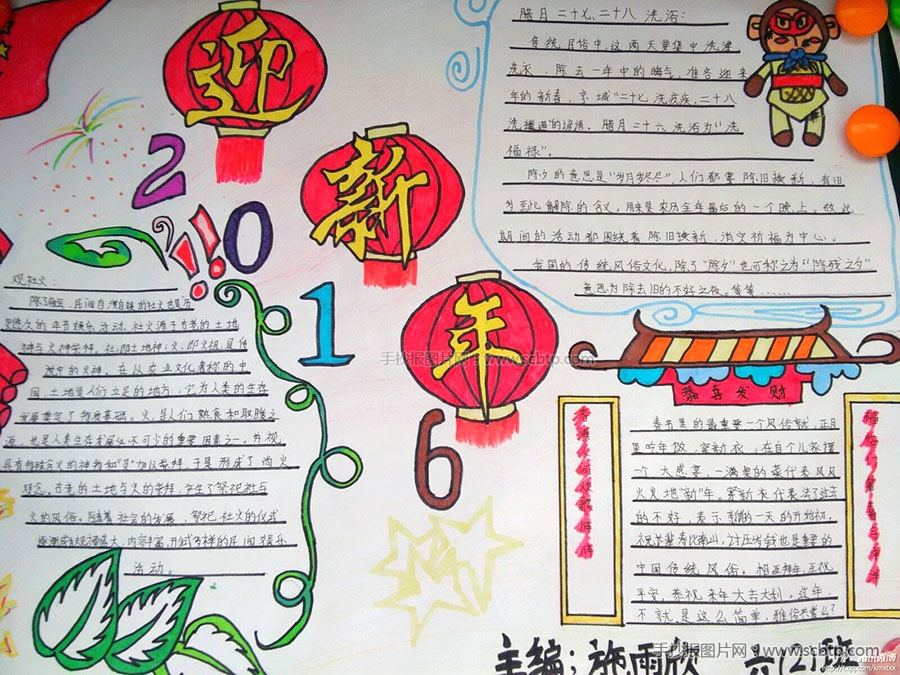 迎
新
年
2
0
1
6
腊月二十七、二十八洗浴：
传统民俗中，这两天要集中洗澡
洗衣，除去一年中的晦气，准备迎来
年的新春，京城"二十七洗疚疾，二十八
洗邋遢"的谚语。腊月二十六洗浴为"洗
福禄"。
除夕的意思是"岁月岁尽"，人们都要除旧换新，有旧
岁到此解除的含义。用来是农历全年最后的一个晚上。故此
期间的活动都围绕着除旧换新，消灾祈福为中心。
我国的传统风俗文化，除了"除夕"也可称之为"除残之夕"
意思为除去旧的不好之夜。等等……
观社火：
除了庙会，民间自演自娱的社火也是历
史悠久的年节娱乐活动。社火源于古老的土地
神与火神崇拜。社，即土地神；火，即火祖，是传
说中的火神。在以农业文化著称的中
国，土地是人们立足的地方，它为人类的生存
发展奠定了物质基础。火，是人们熟食和取暖之
源，也是人类生存发展必不可少的重要因素之一。
具有特殊含义的神奇和"灵"加以崇拜，于是形成了尚火
观念。古老的土地与火的崇拜，产生了祭祀社与
火的风俗。随着社会的发展，祭祀社火的仪式
逐渐成规模盛大、内容丰富、形式多样的民间娱乐
活动。
恭喜发财
春节里的最重要一个风俗就，正月
里吃年饭，穿新衣，在自个儿家摆
一个大盛宴，一满桌的菜代表风风
火火地"新"年。穿新衣代表法了过去
的不好，表示新的一天的开始初。
祝长辈寿比南山，讨压岁钱也是重要的
中国传统风俗。相互拜年，互祝
平安，恭祝来年大吉大利。这年
不就是这么简单，
主编：施雨欣 六(2)班
手抄报图片网 www.scbtp.com
手抄报图片网 www.scbtp.com